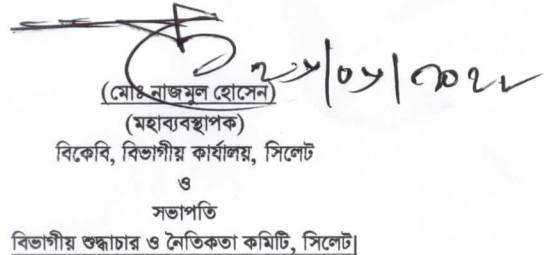 (মোঃ নাজমুল হোসেন)
(মহাব্যবস্থাপক)
বিকেবি, বিভাগীয় কার্যালয়, সিলেট
ও
সভাপতি
বিভাগীয় শুদ্ধাচার ও নৈতিকতা কমিটি, সিলেট|